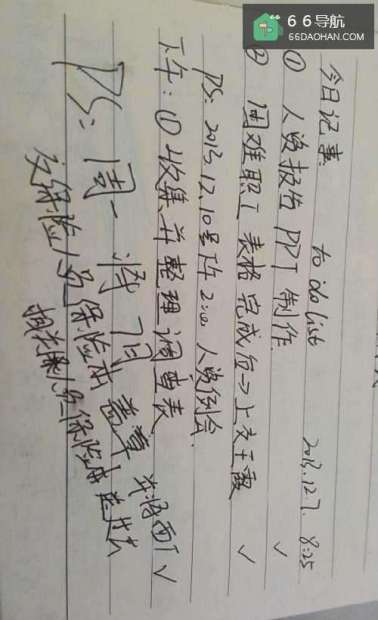 66导航
66DAOHAN.COM
今日记事: to do list 2013.12.7. 8:25
① 人资报告 PPT 制作. ✓
② 困难职工表格 完成后→上交王霞 ✓
PS: 2013.12.10号下午 2:00 人资例会.
下午: ① 收集并整理调查表 ✓
PS: 周一 请 盖章
保险人员保险